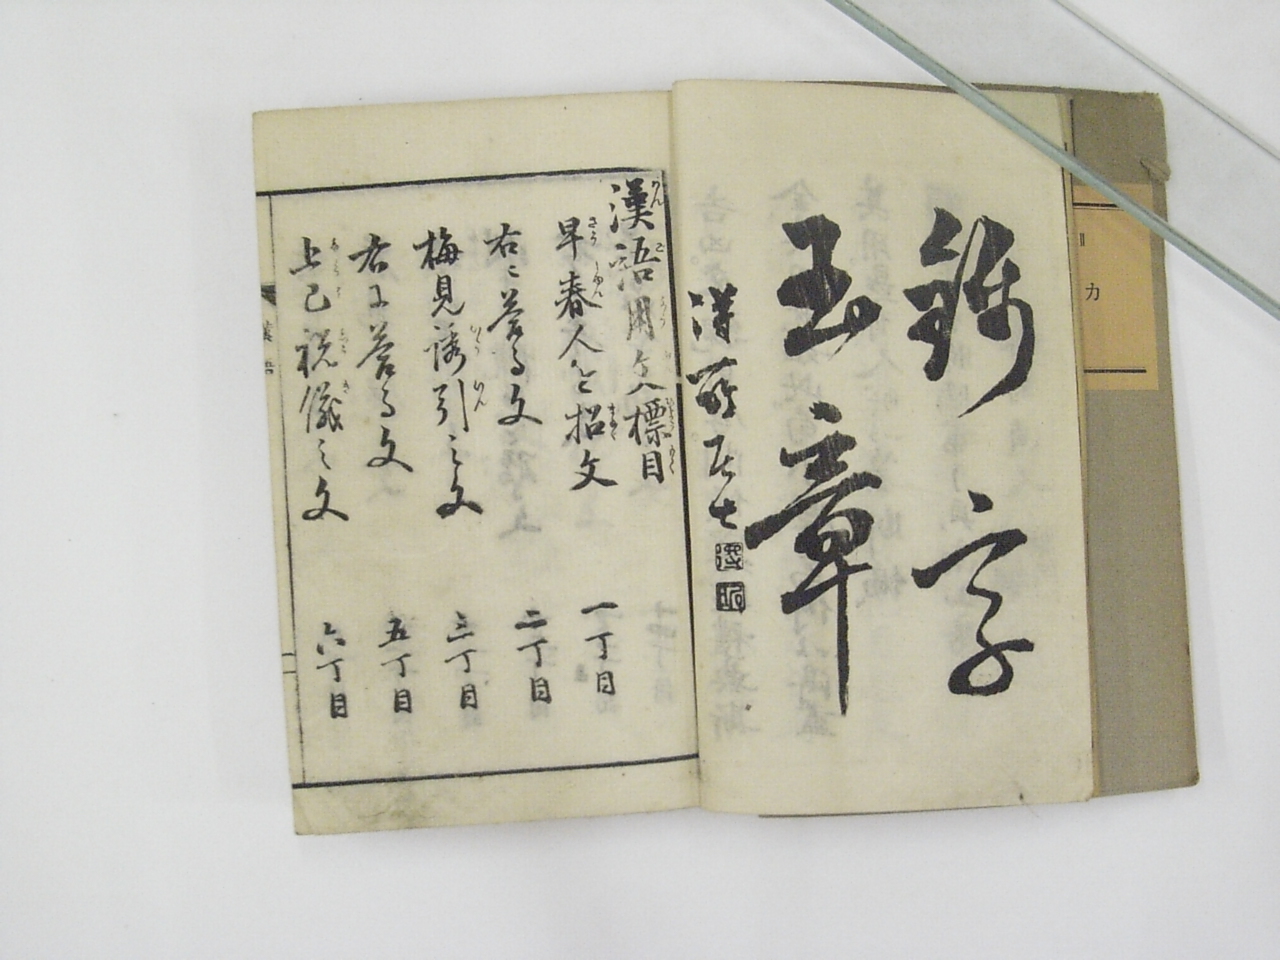 錦字
玉章
漢語用文標目
早春人を招文
一丁目
右に答る文
二丁目
梅見誘引之文
三丁目
右に答る文
五丁目
上巳祝儀之文
六丁目
カ